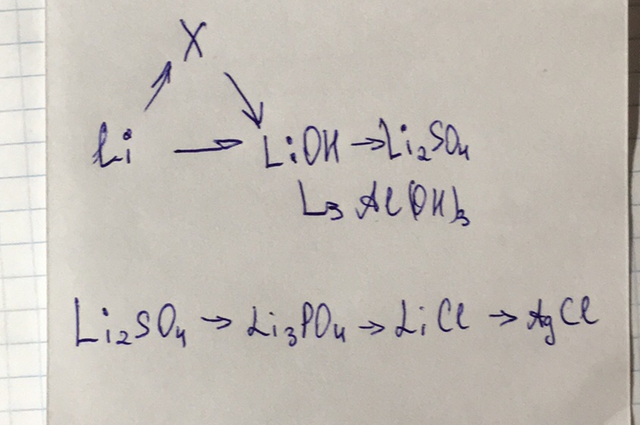 X
Li → LiOH → Li₂SO₄
↳ Al(OH)₃
Li₂SO₄ → Li₃PO₄ → LiCl → AgCl